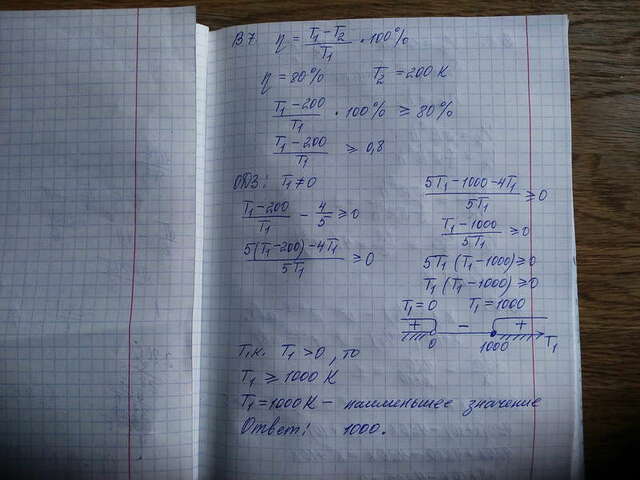 В7. η = (T₁ - T₂)/T₁ • 100%
η = 80% T₂ = 200 К
(T₁ - 200)/T₁ • 100% ≥ 80%
(T₁ - 200)/T₁ ≥ 0,8
ОДЗ: T₁ ≠ 0
(T₁ - 200)/T₁ - 4/5 ≥ 0
(5(T₁ - 200) - 4T₁)/5T₁ ≥ 0
(5T₁ - 1000 - 4T₁)/5T₁ ≥ 0
(T₁ - 1000)/5T₁ ≥ 0
5T₁ (T₁ - 1000) ≥ 0
T₁ (T₁ - 1000) ≥ 0
T₁ = 0 T₁ = 1000
+ - +
0 1000 T₁
Т.к. T₁ > 0, то
T₁ ≥ 1000 К
T₁ = 1000 К - наименьшее значение
Ответ: 1000.